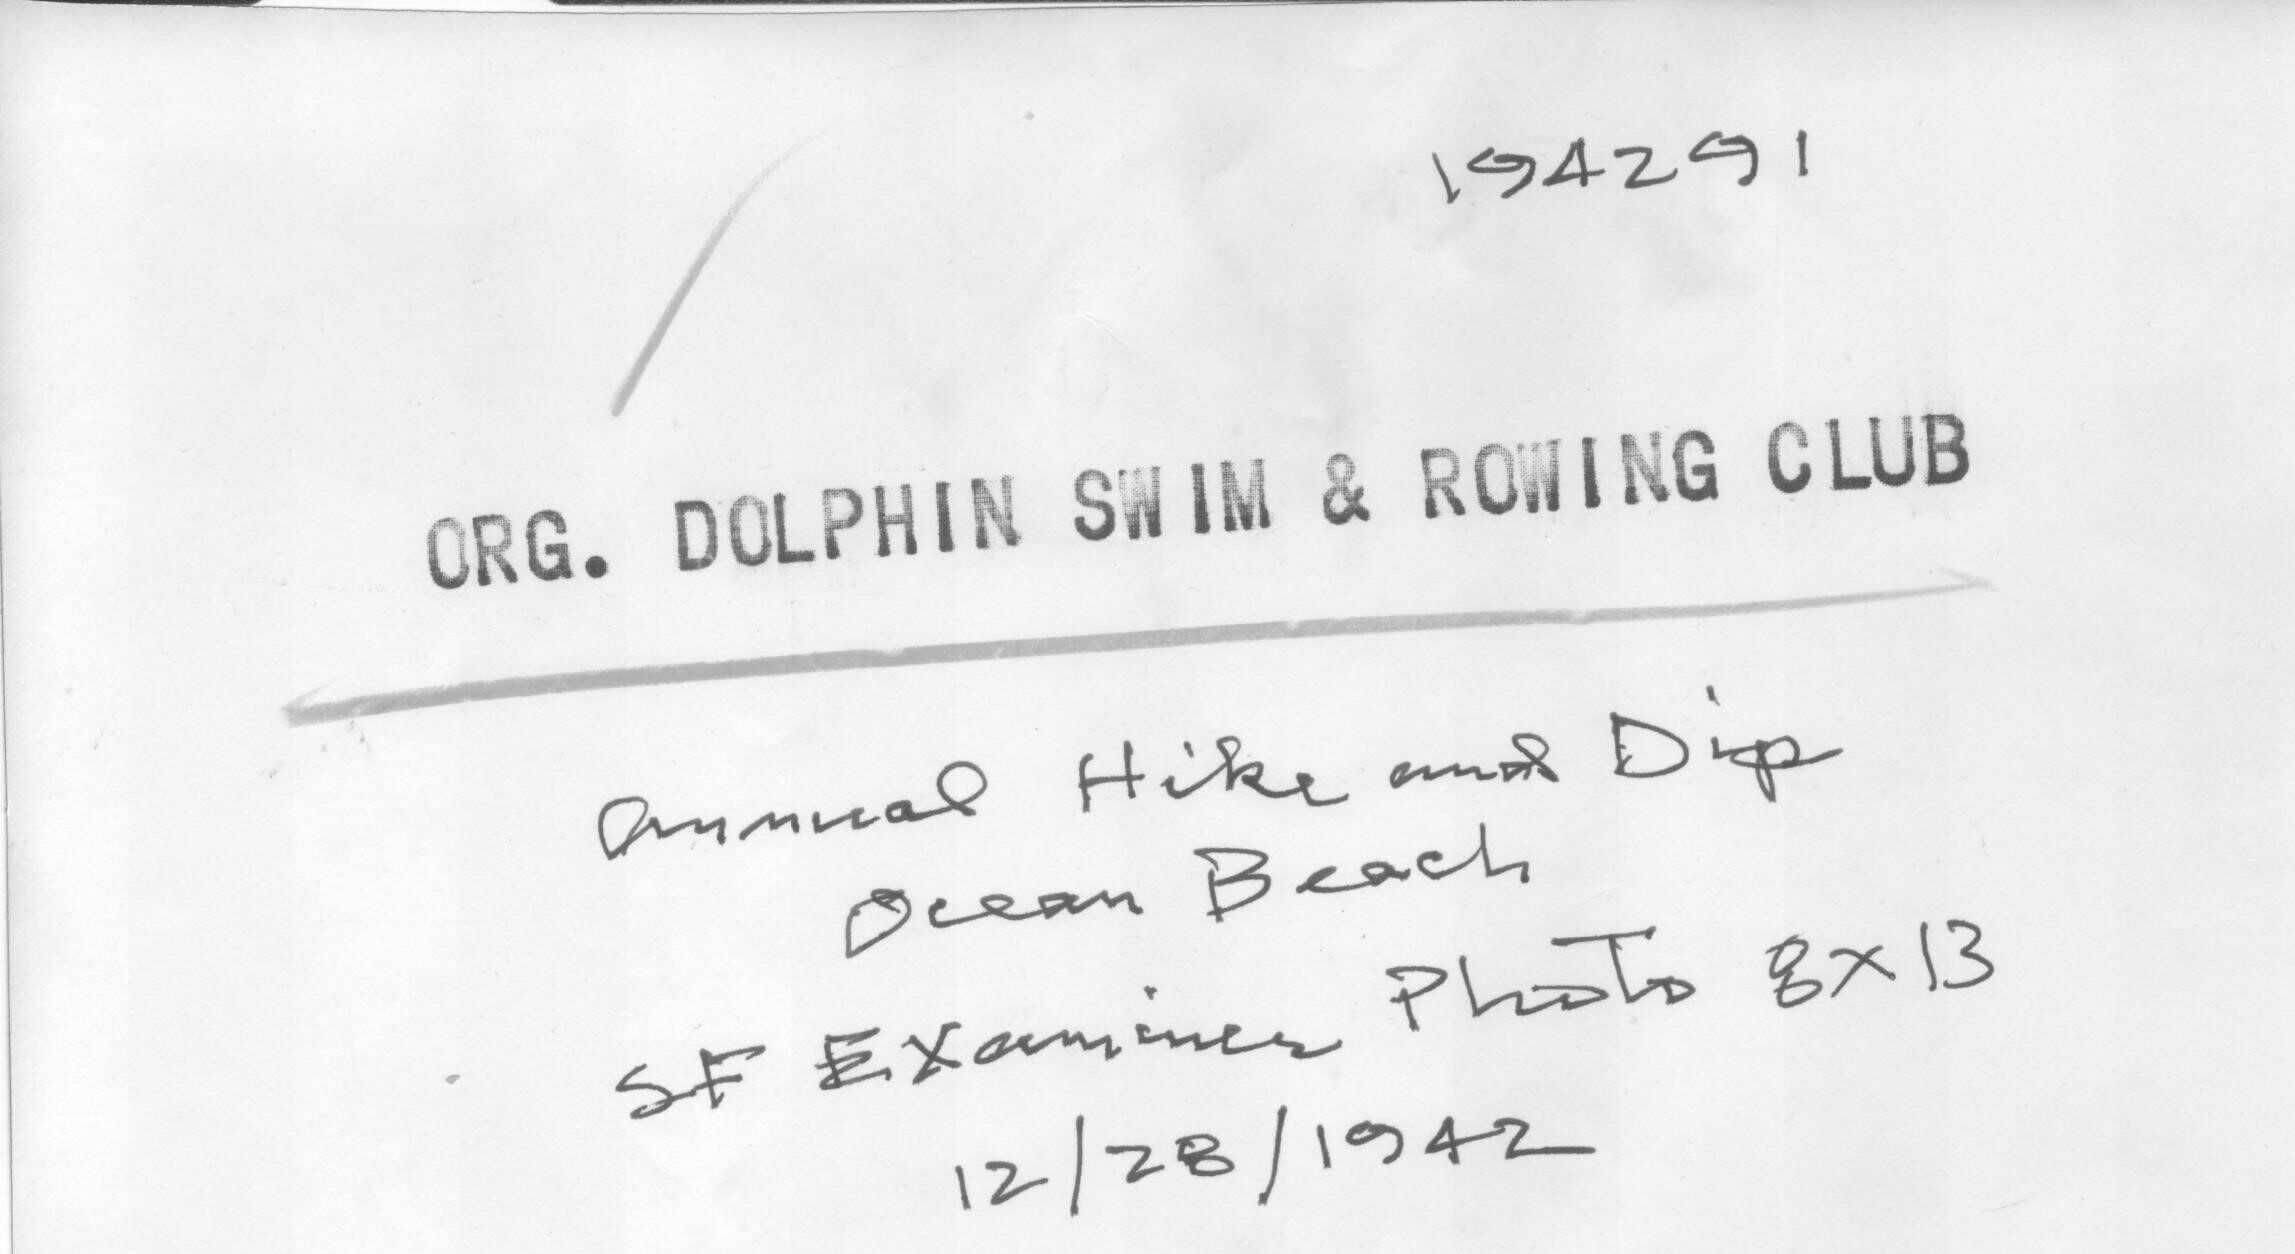 194291
ORG. DOLPHIN SWIM & ROWING CLUB
Annual Hike and Dip
Ocean Beach
SF Examiner Photo 8x13
12/28/1942